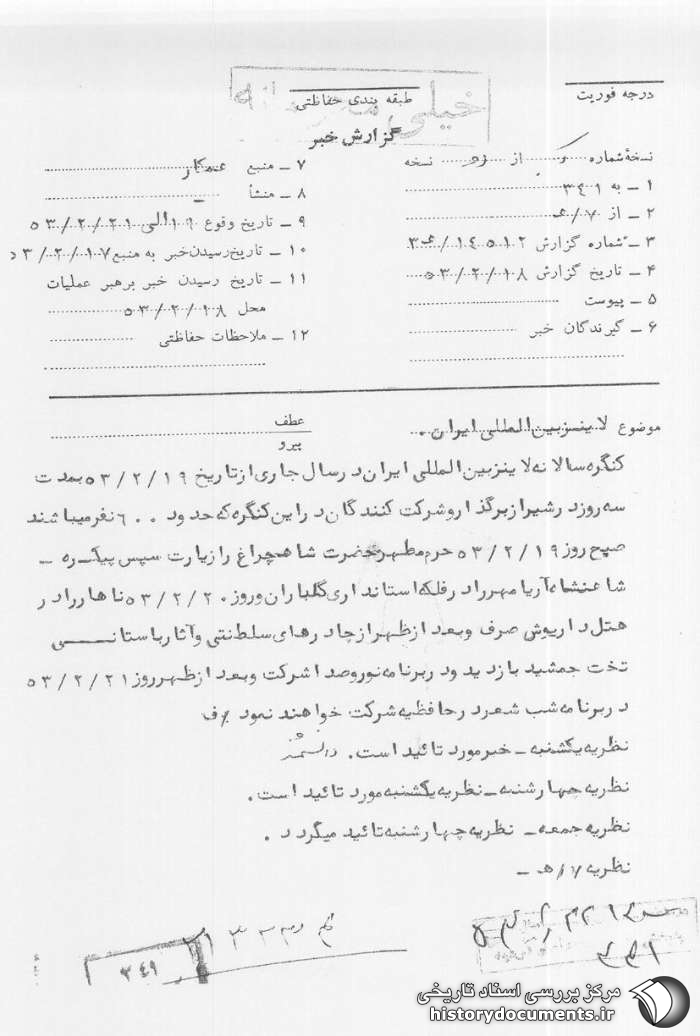 درجه فوریت
طبقه بندی حفاظتی
خیلی
گزارش خبر
نسخهٔ شماره از نسخه
۱ ـ به ۳۴۱
۲ ـ از ۷/ه
۳ ـ شماره گزارش ۱۴۵۱۲/
۴ ـ تاریخ گزارش ۵۳/۲/۱۸
۵ ـ پیوست
۶ ـ گیرندگان خبر
۷ ـ منبع همکار
۸ ـ منشأ ـ
۹ ـ تاریخ وقوع ۱۹ الی ۵۳/۲/۲۱
۱۰ ـ تاریخ رسیدن خبر به منبع ۵۳/۲/۱۷
۱۱ ـ تاریخ رسیدن خبر برهبر عملیات
محل ۵۳/۲/۱۸
۱۲ ـ ملاحظات حفاظتی
موضوع لاینزبین المللی ایران .
عطف
پیرو
کنگره سالانه لاینزبین المللی ایران در سال جاری از تاریخ ۵۳/۲/۱۹ بمدت
سه روز در شیراز برگذار و شرکت کنندگان در این کنگره که حدود ۶۰۰ نفر میباشند
صبح روز ۵۳/۲/۱۹ حرم مطهر حضرت شاهچراغ را زیارت سپس پیکره ـ
شاهنشاه آریامهر را در فلکه استانداری گلباران و روز ۵۳/۲/۲۰ ناهار را در
هتل داریوش صرف و بعد از ظهر از چادرهای سلطنتی و آثار باستانی
تخت جمشید بازدید و در برنامه نور و صدا شرکت و بعد از ظهر روز ۵۳/۲/۲۱
در برنامه شب شعر در حافظیه شرکت خواهند نمود ف
نظریه یکشنبه ـ خبر مورد تائید است . دانشمند
نظریه چهارشنبه ـ نظریه یکشنبه مورد تائید است .
نظریه جمعه ـ نظریه چهارشنبه تائید میگردد .
نظریه ۷/ه ـ
۳۴۹
مرکز بررسی اسناد تاریخی
historydocuments.ir